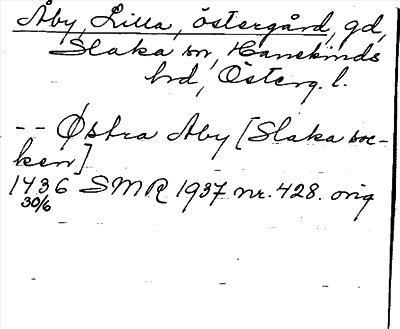 Åby, Lilla, Östergård, gd,
Slaka sn, Hanekinds
hrd, Österg. l.
-- Østra Aby [Slaka soc-
ken]
1436 SMR 1937 nr. 428. orig
30/6